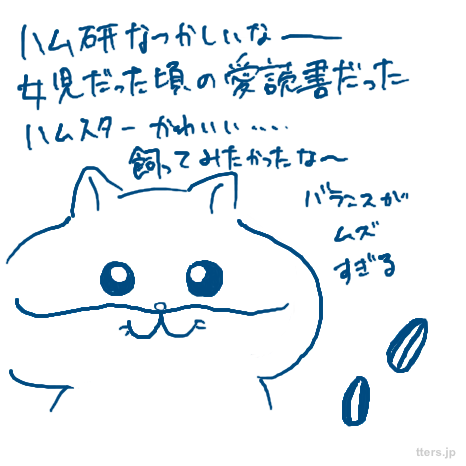 ハム研なつかしいなー
女児だった頃の愛読書だった
ハムスターかわいい....
飼ってみたかったな〜
バランスが
ムズ
すぎる
tters.jp